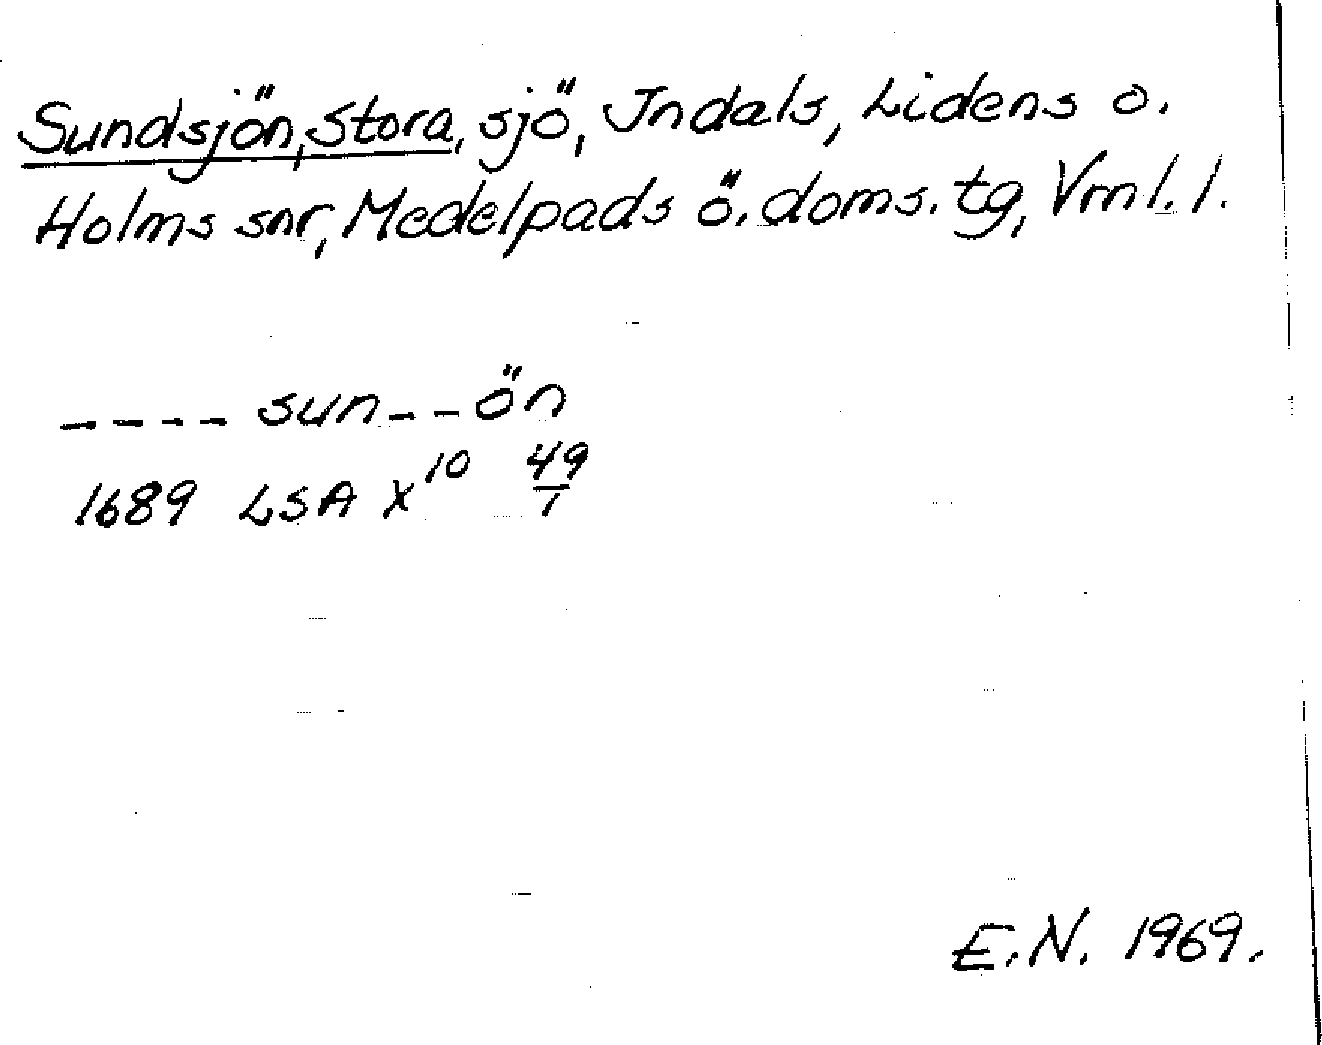 Sundsjön, Stora, sjö, Indals, Lidens o.
Holms snr, Medelpads ö. doms. tg, Vrnl. l.
---- sun--ön
1689 LSA X¹⁰ 49/1
E.N. 1969.